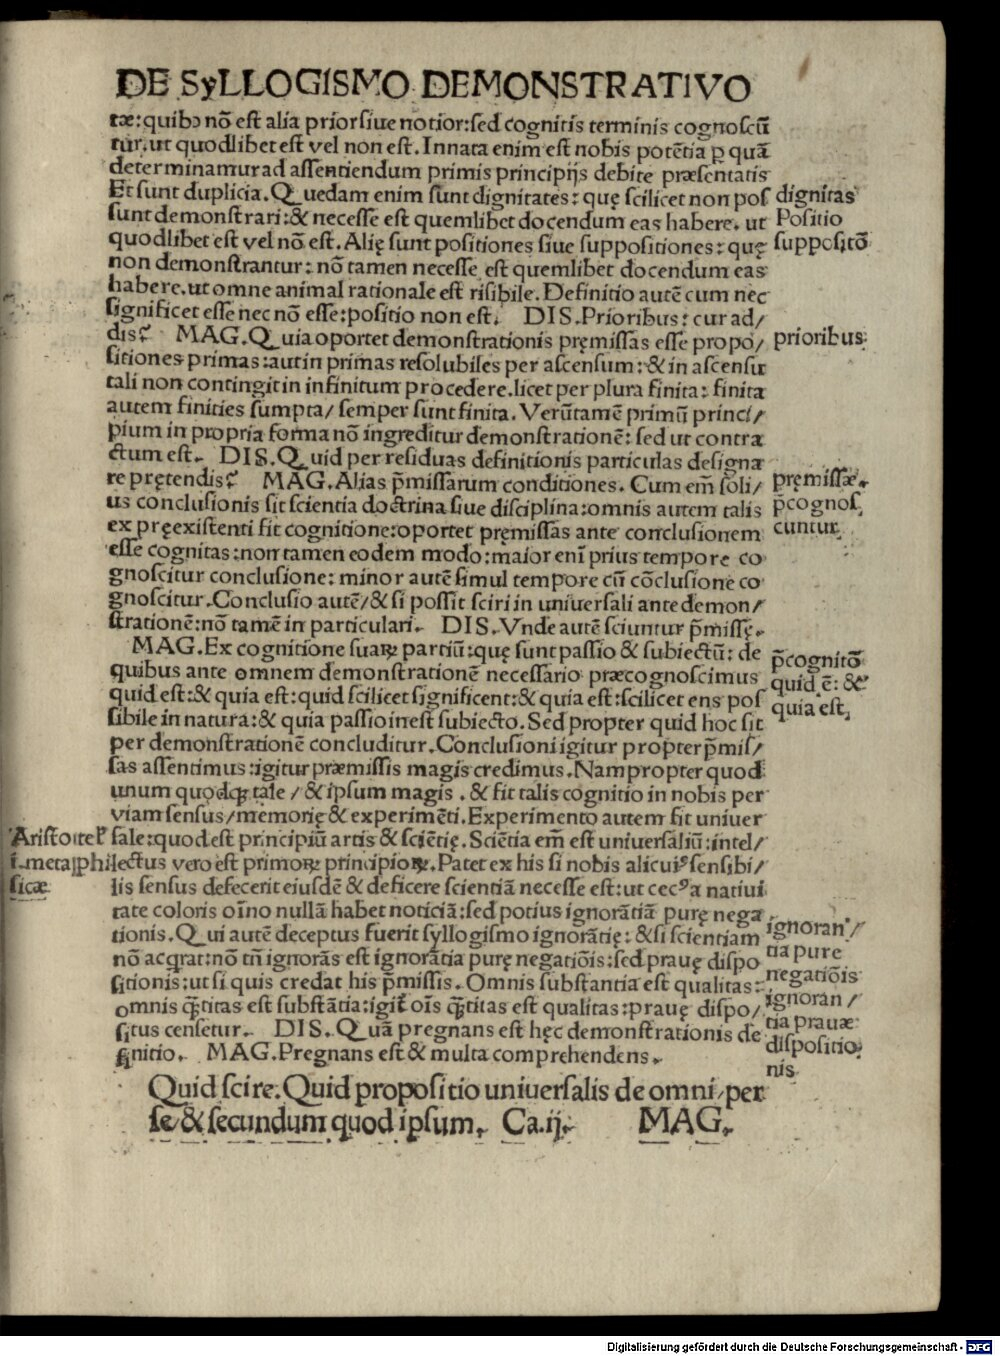 DE SyLLOGISMO DEMONSTRATIVO
tæ:quibꝫ nō est alia prior siue notior:sed cognitis terminis cognoscū
tur.ut quodlibet est vel non est. Innata enim est nobis potētia ꝑ quā
determinamur ad assentiendum primis principijs debite præsentatis
Et sunt duplicia. Quedam enim sunt dignitates: quę scilicet non pos
sunt demonstrari:& necesse est quemlibet docendum eas habere. ut
quodlibet est vel nō est. Alię sunt positiones siue suppositiones: quę
non demonstrantur: nō tamen necesse est quemlibet docendum eas
habere.ut omne animal rationale est risibile. Definitio autē cum nec
significet esse nec nō esse:positio non est. DIS.Prioribus: cur ad/
dis? MAG.Quia oportet demonstrationis pręmissas esse propo/
sitiones primas:aut in primas resolubiles per ascensum:& in ascensu
tali non contingit in infinitum procedere.licet per plura finita: finita
autem finities sumpta/ semper sunt finita. Verūtamē primū princi/
pium in propria forma nō ingreditur demonstrationē: sed ut contra
ctum est. DIS.Quid per residuas definitionis particulas designa
re prętendis? MAG.Alias p̄missarum conditiones. Cum em̄ soli/
us conclusionis sit scientia doctrina siue disciplina:omnis autem talis
ex pręexistenti fit cognitione:oportet pręmissas ante conclusionem
esse cognitas:non tamen eodem modo:maior enī prius tempore co
gnoscitur conclusione: minor autē simul tempore cū cōclusione co
gnoscitur.Conclusio autē/& si possit sciri in uniuersali ante demon/
strationē:nō tamē in particulari. DIS.Vnde autē sciuntur p̄missę.
MAG.Ex cognitione suaꝝ partiū:quę sunt passio & subiectū: de
quibus ante omnem demonstrationē necessario præcognoscimus
quid est:& quia est:quid scilicet significent:& quia est:scilicet ens pos
sibile in natura:& quia passio inest subiecto. Sed propter quid hoc sit
per demonstrationē concluditur.Conclusioni igitur propter p̄mis/
sas assentimus:igitur præmissis magis credimus.Nam propter quod
unum quodqꝫ tale / & ipsum magis . & fit talis cognitio in nobis per
viam sensus/memorię & experimēti.Experimento autem fit uniuer
sale:quod est principiū artis & sciētię. Sciētia em̄ est uniuersaliū:intel/
lectus vero est primoꝝ principioꝝ. Patet ex his si nobis alicuiꝰ sensibi/
lis sensus defecerit eiusdē & deficere scientiā necesse est:ut cecꝰ a natiui
tate coloris oīno nullā habet noticiā:sed potius ignorātiā purę nega
tionis.Qui autē deceptus fuerit syllogismo ignorātię:& si scientiam
nō acq̄rat:nō tn̄ ignorās est ignorātia purę negatiōis:sed prauę dispo
sitionis:ut si quis credat his p̄missis. Omnis substantia est qualitas:
omnis q̄titas est substātia:igit̄ oīs q̄titas est qualitas:prauę dispo/
situs censetur. DIS.Quā pregnans est hęc demonstrationis de
finitio. MAG.Pregnans est & multa comprehendens.
Quid scire.Quid propositio uniuersalis de omni/per
se/& secundum quod ipsum. Ca.ij. MAG.
dignitas
Positio
suppositō
prioribus:
pręmissæ
p̄cognos
cuntur
p̄cognitō
quid ē: &
quia est
Aristotelꝭ
ī.metaphi
sicæ
ignoran/
tia pure
negatiōis
ignoran/
tia prauæ
dispositio
nis
Digitalisierung gefördert durch die Deutsche Forschungsgemeinschaft - DFG